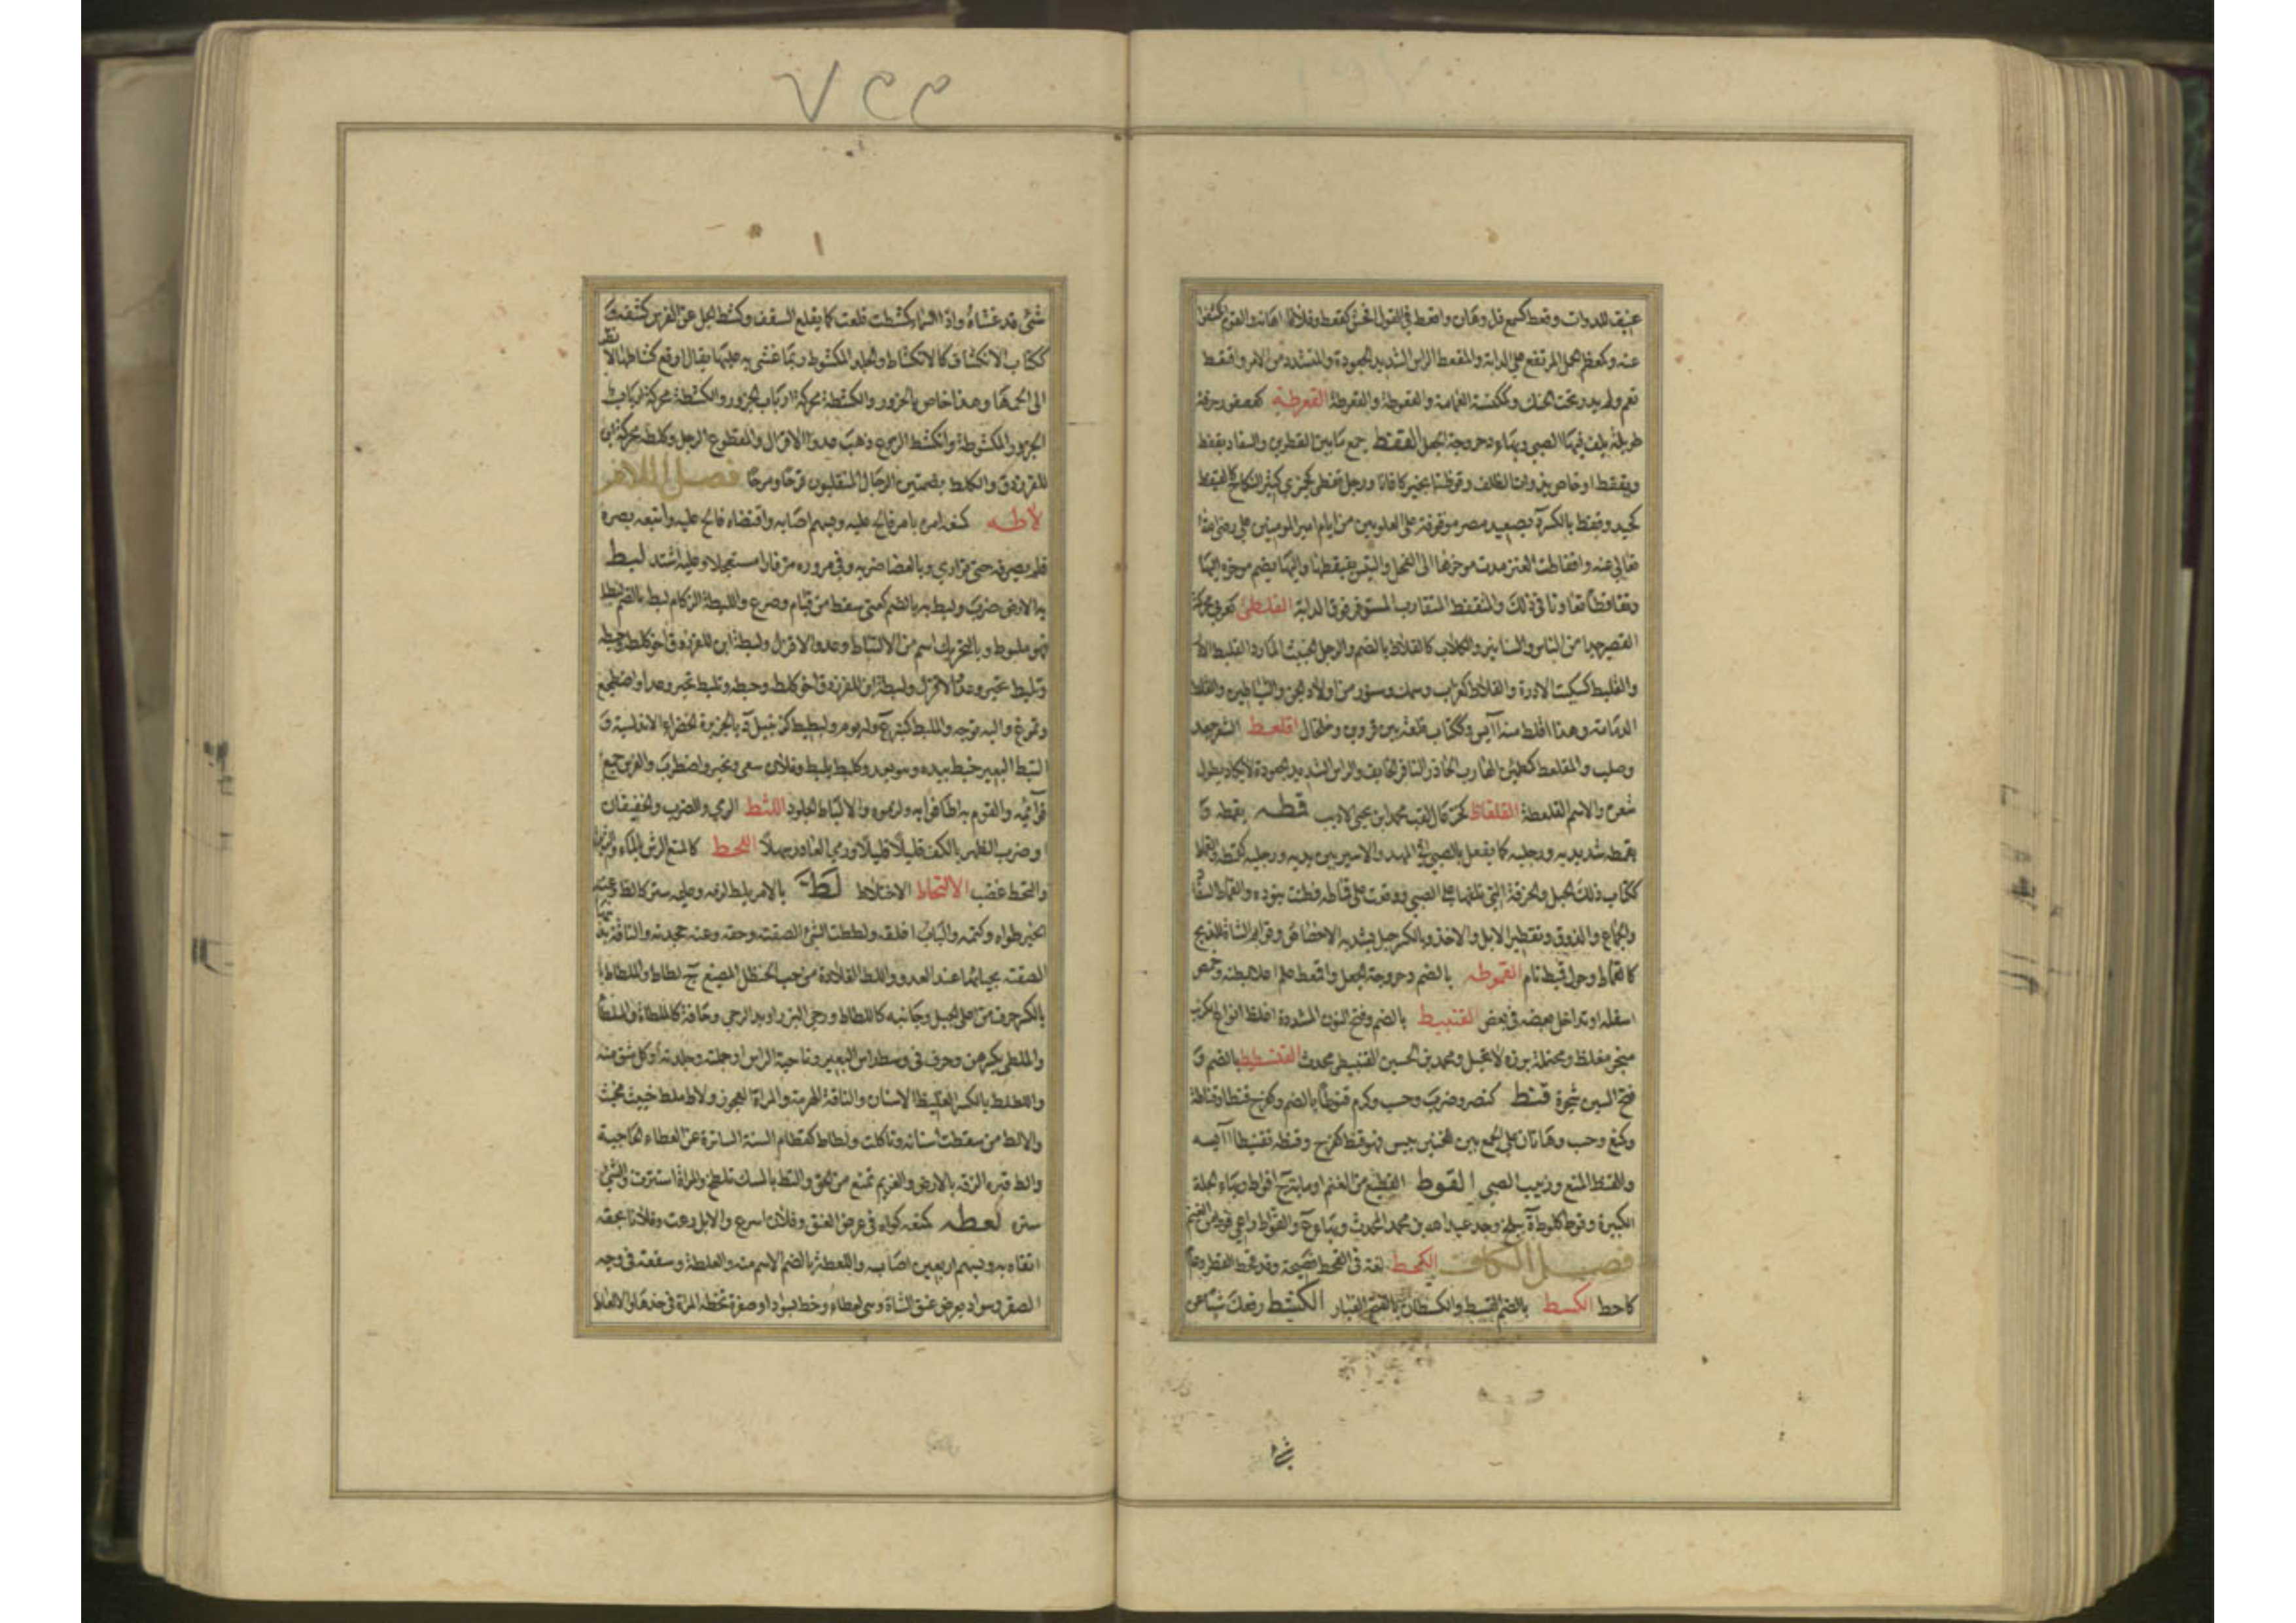 عنيف للدواب وقعط كسمع ذل وهان واقعط في القول افحش كقعط وفلانا اهانه والقوم انكشفوا
عنه وكمعظم الحمل المرتفع على الدابة والمقعط الراس الشديد الجعودة والمتشدد من الامر واقتعط
تعمم ولم يدر تحت الحنك وكمكنسة العمامة والقعوطة والقعرطة القعرطة كعصفور خرقة
طويلة يلف فيها الصبي وبهاء دحروجة الجعل القفط جمع ما بين القطرين والسفاد يقفط
ويقفط او خاص بذوات الظلف وقفطنا بخير كافانا ورجل قفطى كجمزى كثير النكاح كالقيفط
كحيدر وقفط بالكسر ة بصعيد مصر موقوفة على العلويين من ايام امير المومنين على رضى الله
تعالى عنه واقفاطت العنز مدت موخرها الى الفحل والتيس يقتفطها واليها يضم موخره اليها
وتقافطا تعاونا في ذلك والمتقفط المتقارب المستوفز فوق الدابة القلطى كعربي محركة
القصير جدا من الناس والسنانير والكلاب كالقلاط بالضم والرجل الخبيث المارد والقليط
والقليط كسكيت الادرة والقلاط كغراب وسمك وسنور من اولاد الجن والشياطين والقلط
الدمامة وهذا اقلط منه آيس وككتاب قلعة بين قزوين وخلخال اقلعط الشعر جعد
وصلب والمقلعط كمطمئن الهارب الحاذر النافر الخايف والراس الشديد الجعودة لا يكاد يطول
شعره والاسم القلعطة القلفاط لقب محمد بن يحيى الاديب قمطه يقمطه و
يقمطه شد يديه ورجليه كما يفعل بالصبي في المهد والاسير بين يديه ورجليه كقمطه والقماط
ككتاب ذلك الحبل والخرقة التي تلفها على الصبي ووقعت على قماطه فطنت ببنوده والقماط
والجماع والذوق وتقطير الابل والاخذ وبالكسر حبل يشد به الاخصاص وقوايم الشاة للذبح
كالقماط وحول قميط تام القموطه بالضم دحروجة الجعل واقمعط
اسفله او تداخل بعضه في بعض القنبيط بالضم وفتح النون المشددة اغلظ انواع الكرنب
مبخر مغلظ ومحتملة بزره لا تحبل ومحمد بن الحسين القنبيطى محدث القنسطيط بالضم و
فتح السين شجرة قنط كنصر وضرب وحسب وكرم قنوطا بالضم وكفرح قنطا وقناطة
وكمنع وحسب وهاتان على الجمع بين اللغتين يئس فهو قنط كفرح وقنطه تقنيطا آيسه
والقنط المنع وزبيب الصبي القوط القطيع من الغنم او مائة ج اقواط وبهاء الجلة
الكبيرة وقوط كلوط ة ببلخ وجد عبد الله بن محمد المحدث وبهاء ع والقواط راعي قوط من الغنم
فصل الكاف الكحط لغة في القحط فصيحة وقد كحط القطر
كاحط الكسط بالضم القسط والكسطان بالفتح الغبار الكشط رفعك شيا عن
شي
٧٢٢
شي قد غشاه واذا السماء كشطت قلعت كما يقلع السقف وكشط الجل عن الفرس كشفه
ككتاب الانكشاف كالانكشاط والجلد المكشوط ربما غشى به عليها يقال ارفع كشاطها لانظر
الى لحمها وهذا خاص بالجزور والكشطة محركة ارباب الجزور والكشطة محركة ارباب
الجزور المكشوطة وانكشط الروع ذهب عدو الاقزل والمقطوع الرجل وكلطه محركة ابن
للفرزدق والكلط بضمتين الرجال المتقلبون فرحا ومرحا فصل اللام
لأطه كمنعه امره بامر فالح عليه وبسهم اصابه واقتضاه فالح عليه واتبعه بصره
فلم يصرفه حتى توارى وبالعصا ضربه وفي مروره مر فارا مستعجلا وعليه اشتد لبط
به الارض ضرب ولبط به بالضم كعنى سقط من قيام وصرع واللبطة الزكام لبط بالضم
فهو ملبوط وبالتحريك اسم من الالتباط وعدو الاقزل ولبطة ابن للفرزدق اخو كلطة وحبطة
وتلبط تحير وعدو الاقزل ولبطة ابن للفرزدق اخو كلطة وحبطة وتلبط تحير وعدا واضطجع
وتمرغ واليه توجه والملبط كمنبر ع وله يوم ولبطيط كزنجبيل ة بالجزيرة الخضراء الاندلسية و
التبط البعير خبط بيده وهو يعدو كلبط يلبط وفلان سعى وتحير واضطرب والفرس جمع
قوائمه والقوم به اطافوا به ولزموه والالباط الجلود اللثط الرمي والضرب الخفيفان
او ضرب الظهر بالكف قليلا قليلا ورمي العاذر سهلا اللحط كالمنع الرش بالماء
والتحط غضب الالتخاط الاختلاط لط بالامر يلط لزمه وعليه ستر كالط وعنه
الخبر طواه وكتمه والباب اغلقه ولططت الشي الصقته وحقه وعنه جحدته والناقة بذنبها
الصقته بحيائها عند العدو واللط القلادة من حب الحنظل المصبغ ج لطاط والملطاط
بالكسر حرف من اعلى الجبل وجانبه كاللطاط ورحى البزر او يد الرحى وحافة
والملطى يكره من وحرف في وسط راس البعير وناحية الراس او جلته وجلدته او كل شق منه
واللطلط بالكسر الغليظ الاسنان والناقة الهرمة والمراة العجوز ولاط ملط خبيث مخبث
والالط من سقطت اسنانه وتاكلت ولطاط كقطام السنة الساترة عن العطاء الحاجبة
والط قبره الزقه بالارض والغريم تمنع من الحق والتط بالمسك تلطخ والمراة استترت والشي
ستره لعطه كمنعه كواه في عرض العنق وفلان اسرع والابل رعت وفلانا بحقه
اتقاه به وبسهم او بعين اصابه واللعطة بالضم الاسم منه والعلطة وسفعة في وجه
الصقر وسواد بعرض عنق الشاة وهي لعطاء وخط بسواد او صفرة تخطه المراة في خدها والالعاط